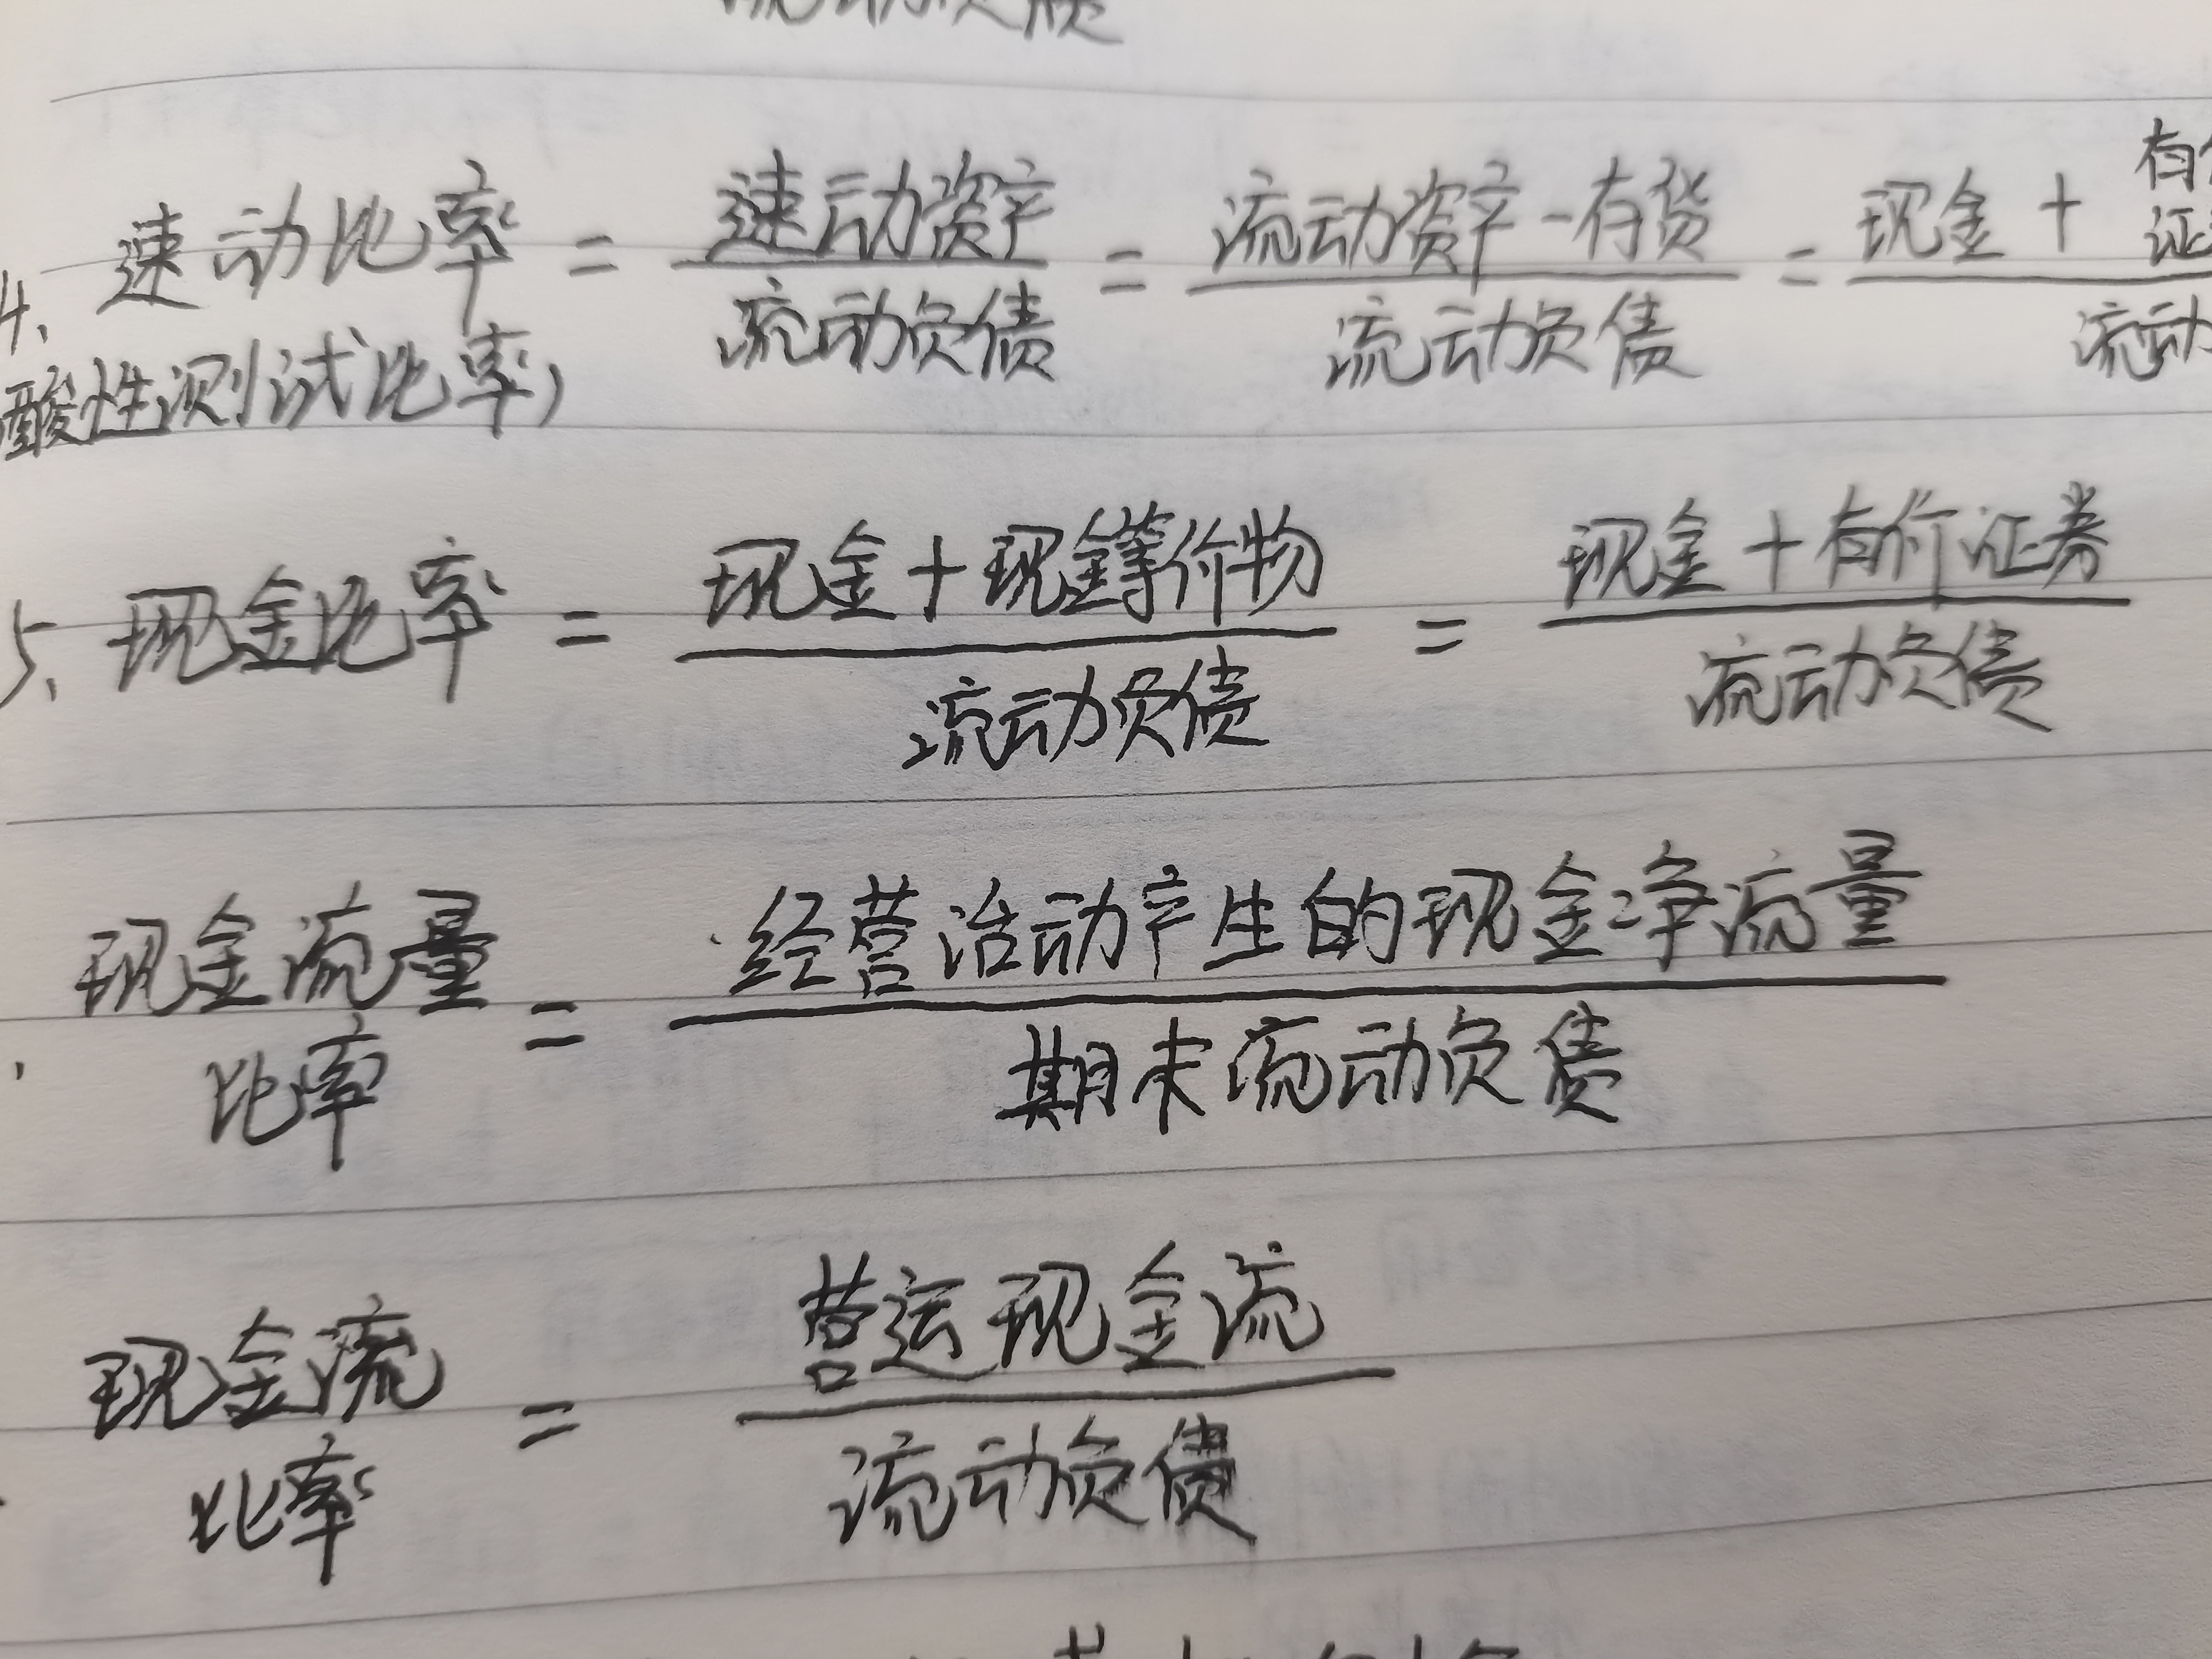 流动负债
4、速动比率 = 速动资产 / 流动负债 = 流动资产-存货 / 流动负债 = 现金 + 有 证 / 流动
酸性测试比率)
5、现金比率 = 现金+现金等价物 / 流动负债 = 现金+有价证券 / 流动负债
现金流量比率 = 经营活动产生的现金净流量 / 期末流动负债
现金流比率 = 营运现金流 / 流动负债